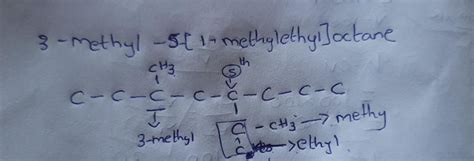 3-methyl-5[1-methylethyl]octane
CH3 5th
C-C-C-C-C-C-C-C
3-methyl C-CH3→methy
C →ethyl